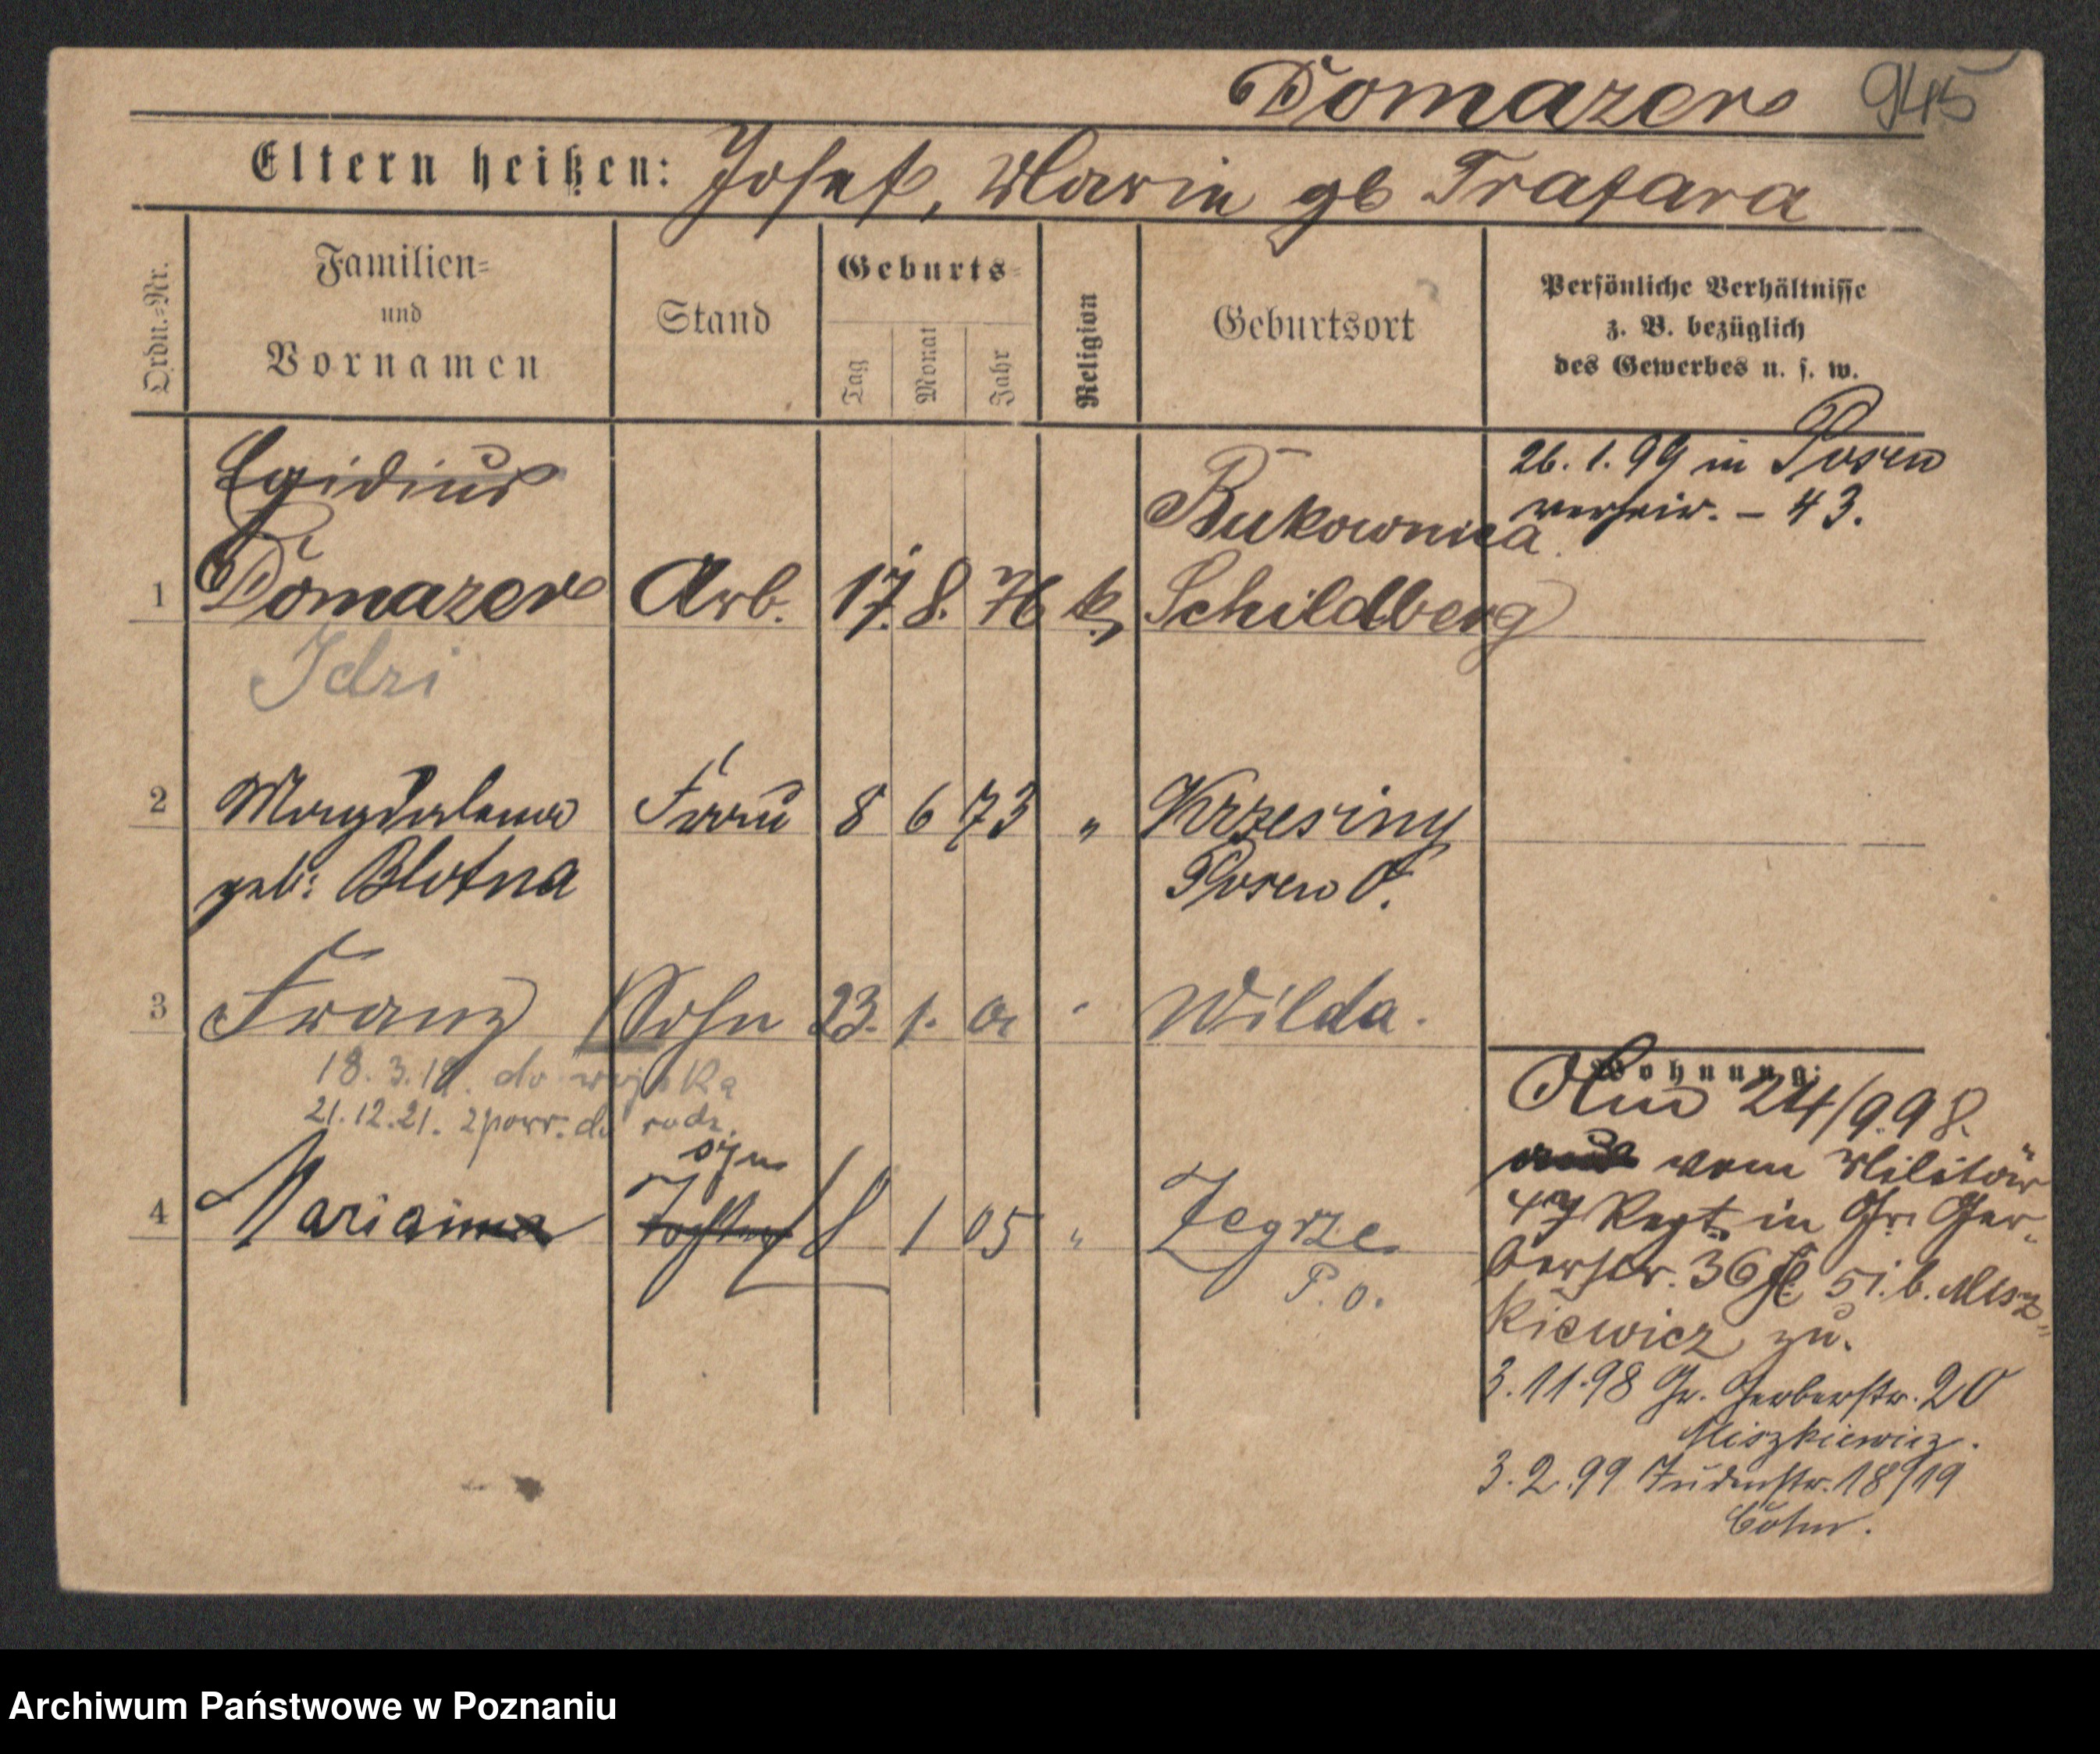 Domazer 945
Eltern heißen: Josef, Marie gb Trafara
Ordn.-Nr.
Familien-
und
Vornamen
Stand
Geburts-
Tag
Monat
Jahr
Religion
Geburtsort
Persönliche Verhältnisse
z. B. bezüglich
des Gewerbes u. s. w.
Egidius
26. 1. 99 in Posen
verheir. - 43.
Bukownica
1 Domazer Arb. 17. 8. 76 k. Schildberg
Idzi
2 Magdalena Frau 8 6 73 " Krzesiny
geb: Blotna Posen O.
3 Franz Sohn 23. 1. 01 " Wilda.
18. 3. 19. do wojska
21.12.21. zpow. do rodz.
syn
4 Marian Tochter 8 1 05 " Zegrze
P. O.
Wohnung:
24/9.98.
vom Militär
47 Regt. in Gr. Ger-
berstr. 36 b. Misz-
kiewicz zu.
3.11.98 Gr. Gerberstr. 20
Miszkiewicz.
3.2.99 Judenstr. 18/19
Cohn.
Archiwum Państwowe w Poznaniu